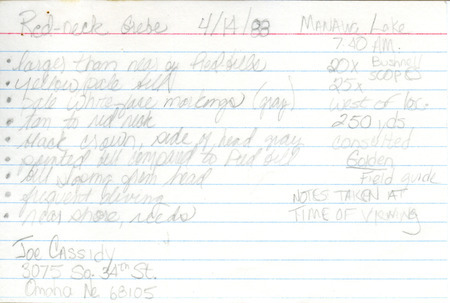 Red-neck Grebe 4/14/93 Manawa Lake
7:40 A.M.
• larger than nearby Pied bill
20x Bushnell
SCOPES
• yellow pale bill
25x
• pale white face markings (gray)
west of loc.
• tan to red neck
250 yds
• black crown, side of head gray
consulted
• pointed bill compared to Pied bill
Golden
• head
Field guide
• frequent diving
NOTES TAKEN AT
• near shore, reeds
TIME OF VIEWING
Joe Cassidy
3075 So. 34th St.
Omaha Ne 68105